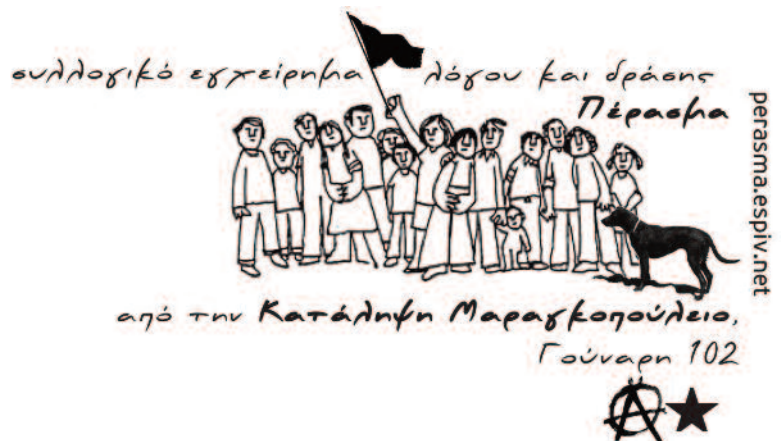 συλλογικό εγχείρημα λόγου και δράσης
Πέρασμα
perasma.espiv.net
από την Κατάληψη Μαραγκοπούλειο,
Γούναρη 102